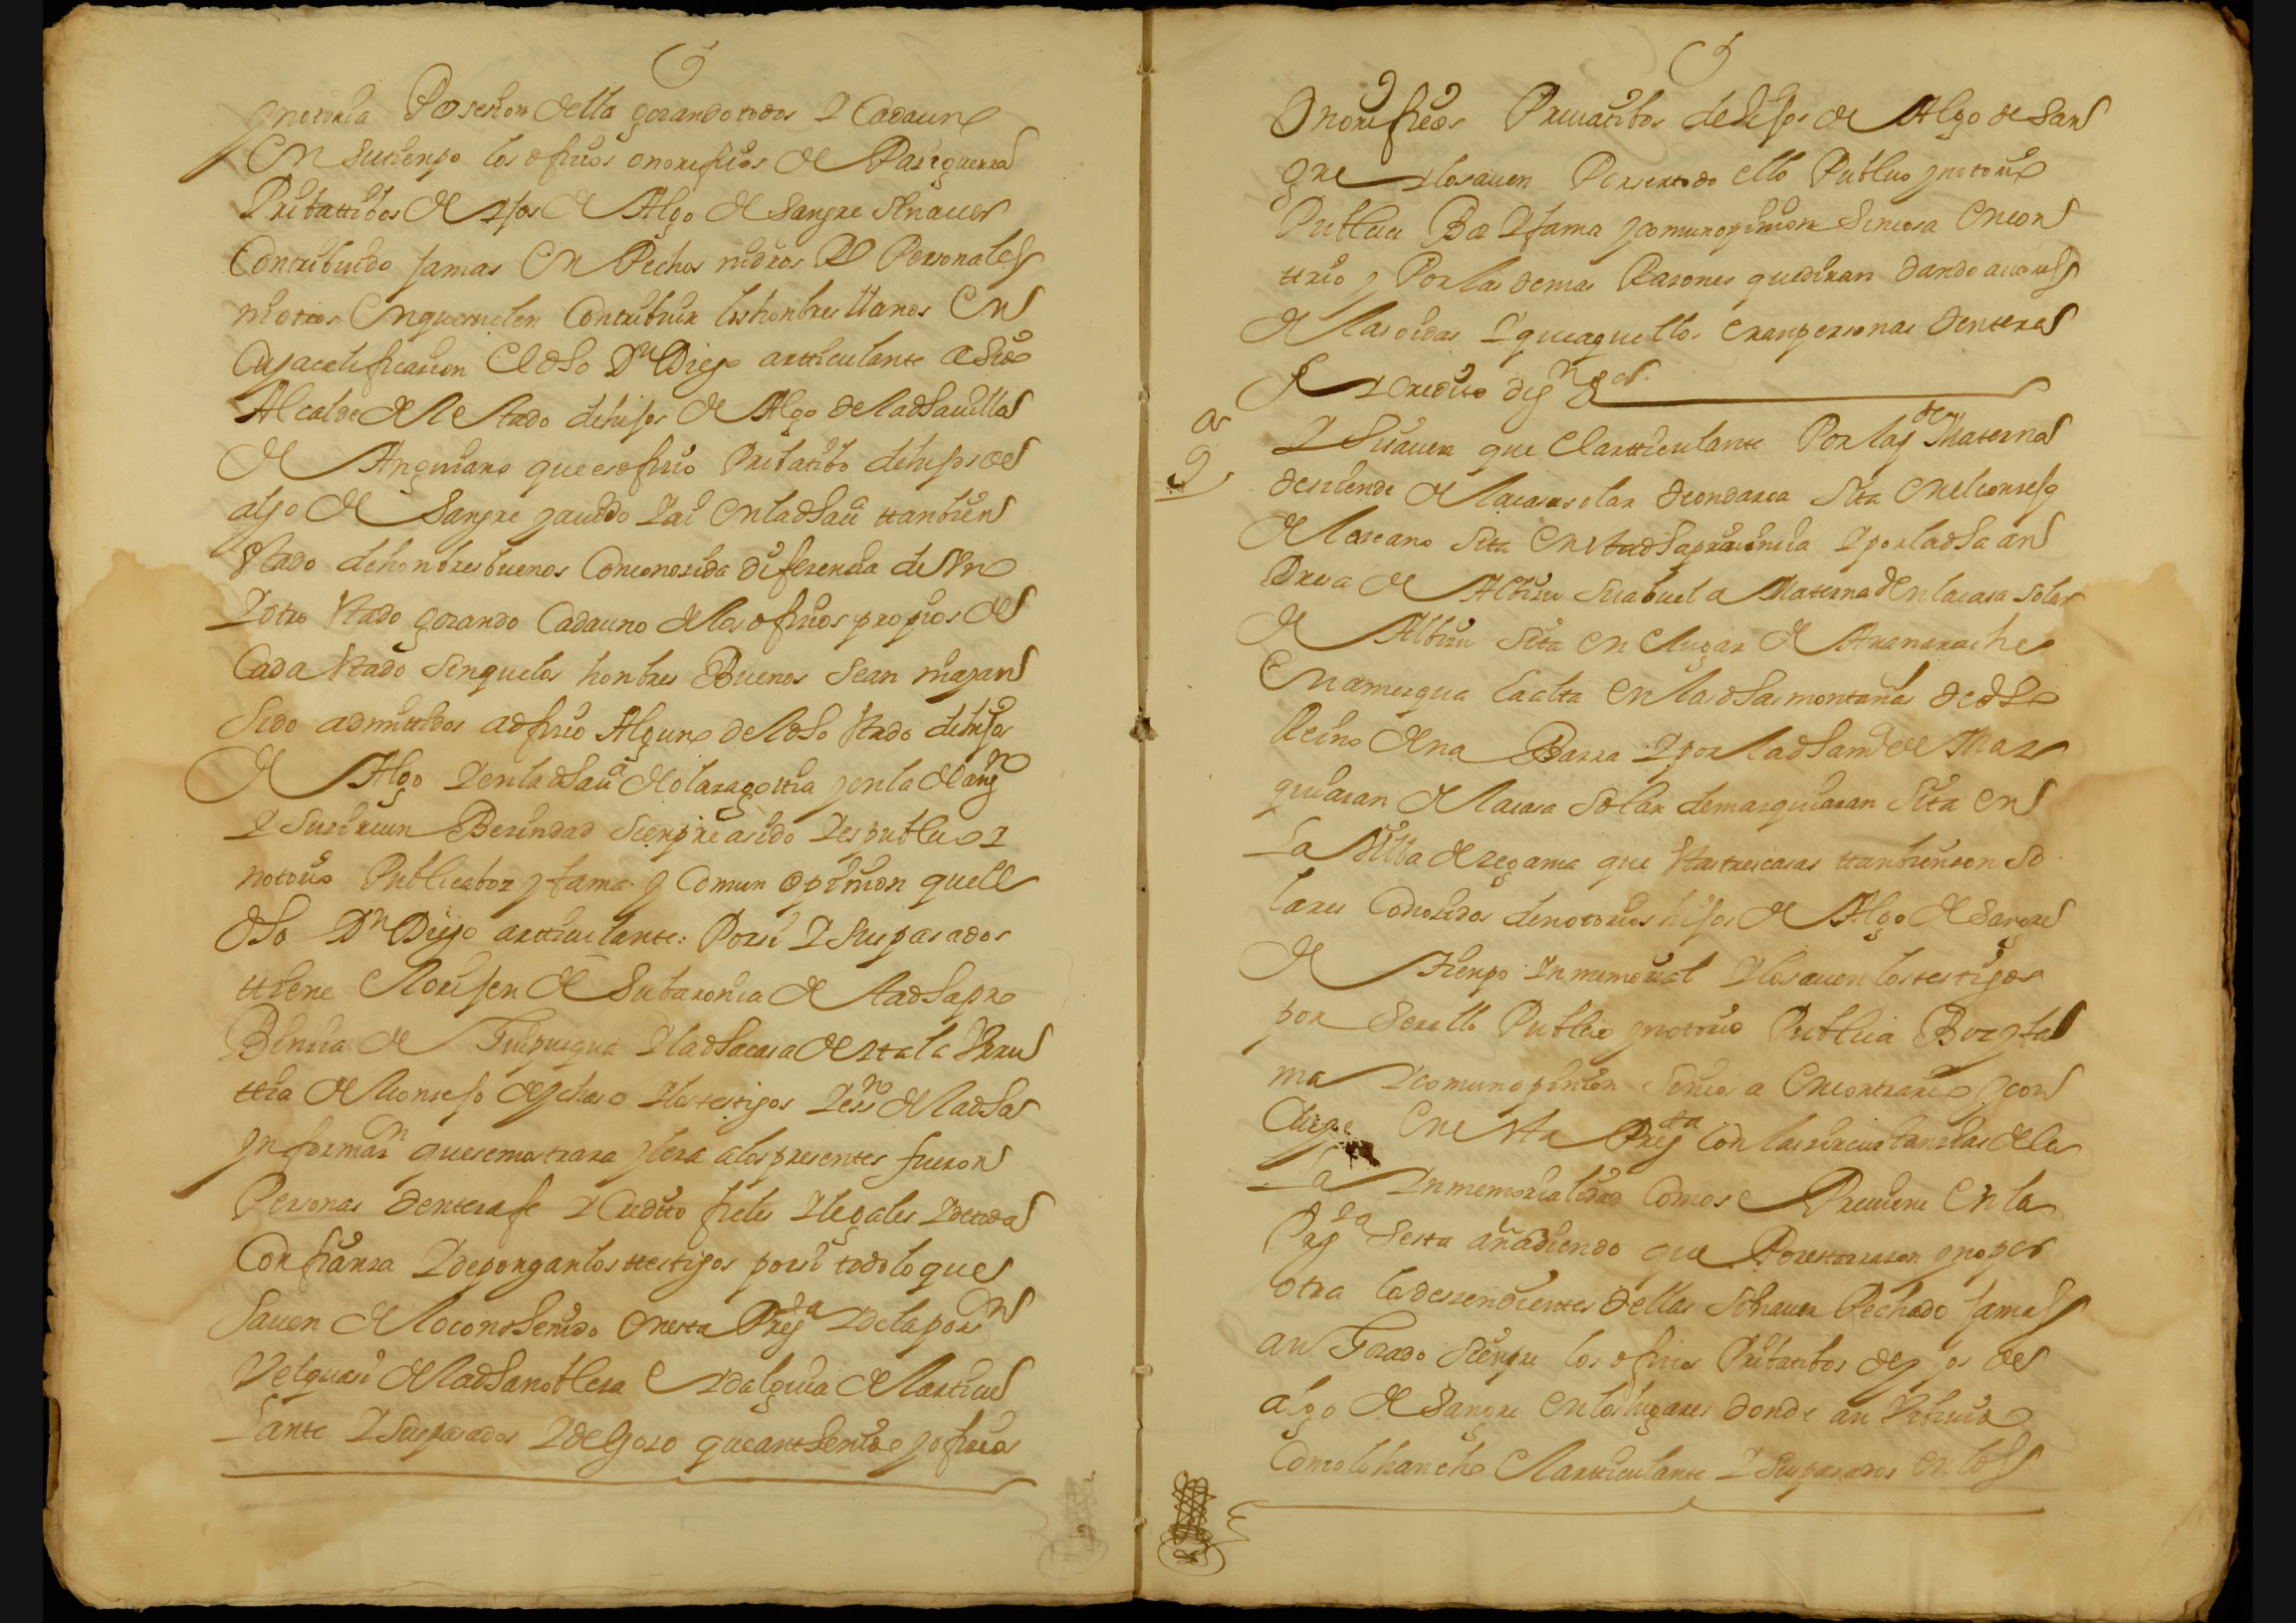 ynotoria Posesion della goçando todos Y Cadauno
En sutienpo los ofiçios onorifiços de Pas i guerra
Pribattibos de Yjos de Algo de sangre sinauer
Contribuido jamas En Pechos Personales
niotros Enquesuelen Contribuir los honbres llanos En
Cuya calificacion El dho Dn Diego artticulante a sido
Alcalde del estado dehijos de Algo deladhauilla
de Anguiano que es ofiçio Pribatibo dehijosde
algo de Sangre yauido Yai enladha ttanbien
estado dehonbresbuenos Conconosida diferencia de Vno
Yotro estado goçando Cadauno delos ofiçios propios de
Cada estado sinquelos honbres Buenos sean niayan
Sido admittidos a ofiçio Alguno deldho estado dehijos
de Algo Yenladhau.a de olaragottia yenla de ang.no
Y Besindad sienpre asido Yes publico Y
notorio Publicaboz yfama y Comun opinion quell
dho Dn Diego artticulante Porsi Y Suspasados
ttiene Elorijen de Subaronia de la dha pro
Binçia de Guipuzqua Yladhacasa de
delconsejo de Ylostestigos de la dha
Informan quesemostrara alospresentes fueron
Personas dentera fe Y Credito fieles Ylegales Ydetoda
Confianza Ydeponganlos ttestigos porsi todo loque
Sauen delocontthenido enesta Preg.ta Ydelaposs.on
Velquasi deladhanobleza E Ydalguia delarticu
Lante Y Suspasados Ydelgozo queantthenido yofiçios
Onorifiços Priuatibos dehijos de Algo de San
gre Ylosauen Porsertodo ello Publico ynotorio
Publica Boz Yfama ycomunopinion Sincosa Encon
ttrio y Porlas demas Razones quediran dando autores
delasoidas Yqueaquellos Eranpersonas dentera
fe YCredito
9
Y Siauen que Elartticulante Porlaj de Materna
desciende delacasasolar deondarra Sita Enelconsejo
de Lazcano Sita Enestadhaprouincia Yporladha an
Drea de Albizu Suabuela Materna delacasa Solar
de Albizu Sita En Elugar de Aranarache
Enamesqua laalta Enlasdhasmontañas dedho
Reino dena Barra Yporladha de Maz
quiaran delacasa Solar demazquiaran Sita En
La Villa de zegama que estastrescasas ttanbienson So
lares Conosidos denotorios hijos de Algo de Sangre
de Tienpo Inmemorial Ylosauen lostestigos
por Serello Publico ynotorio Publica Boz yfa
ma Ycomunopinion Sincosa Encontrario ycon
Cluye Enesta Preg.ta Con lascircunstancias dela
La Inmemorialidad Comose Preuiene Enla
Preg.ta Sesta añadiendo que Porestarazon ynopor
otra losdescendientes dellas Sinauer Pechado jamas
an Gozado Sienpre los ofiçios Pribatibos deyjos de
algo de Sangre Enloslugares Donde an Vibido
Comolohanecho Elartticulante Y Suspasados en los